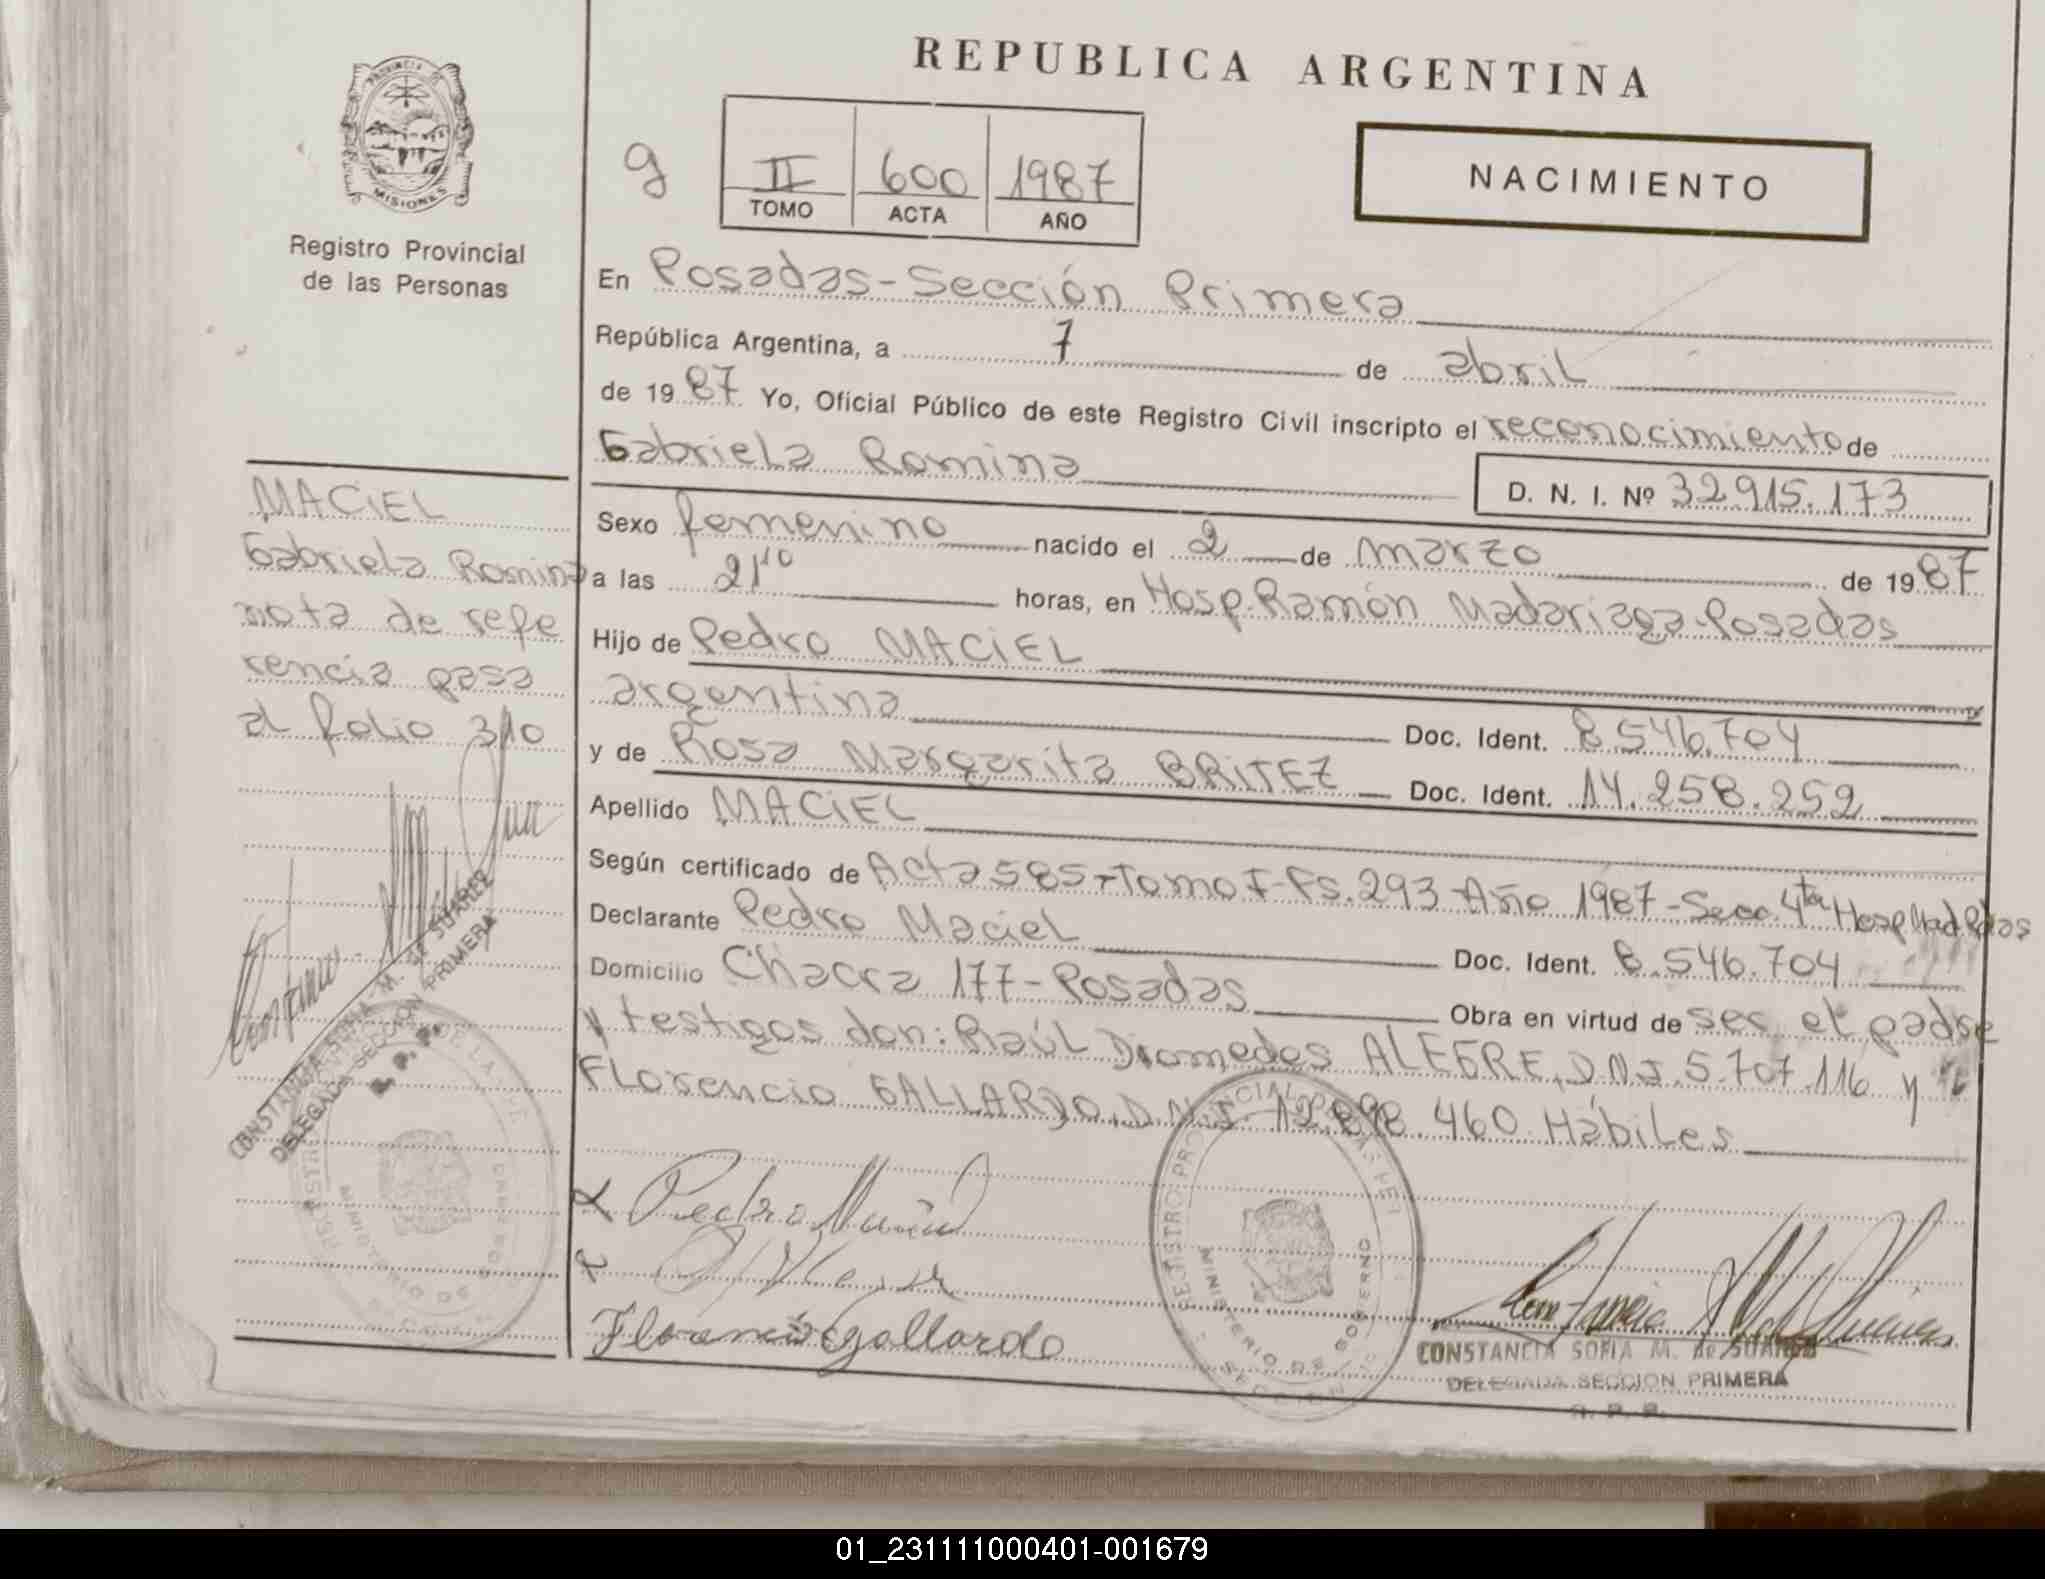 REPUBLICA ARGENTINA
PROVINCIA DE
MISIONES
Registro Provincial
de las Personas
g
II 600 1987
TOMO ACTA AÑO
NACIMIENTO
En Posadas-Sección Primera
República Argentina, a 7 de abril
de 1987 Yo, Oficial Público de este Registro Civil inscripto el reconocimiento de
Gabriela Romina
D. N. I. Nº 32.915.173
Sexo femenino nacido el 2 de marzo de 1987
a las 21¹⁰ horas, en Hosp. Ramón Madariaga-Posadas
Hijo de Pedro MACIEL
argentina Doc. Ident. 8.546.704
y de Rosa Margarita BRITEZ Doc. Ident. 14.258.252
Apellido MACIEL
Según certificado de Acta 585-Tomo I-Fs. 293-Año 1987-Secc. 4ta Hosp Mad Pdas
Declarante Pedro Maciel Doc. Ident. 8.546.704
Domicilio Chacra 177-Posadas Obra en virtud de ser el padre
y testigos don: Raúl Diomedes ALEGRE, D.N.I. 5.707.116 y
Florencio GALLARDO, D.N.I. 12.898.460 Hábiles
MACIEL
Gabriela Romina
nota de refe
rencia pasa
al folio 310
CONSTANCIA SOFIA M. de SUAREZ
DELEGADA SECCION PRIMERA
R. P. P.
Pedro Maciel
Florencio Gallardo
REGISTRO PROVINCIAL DE LAS PER
MINISTERIO DE GOBIERNO
CONSTANCIA SOFIA M. de SUAREZ
DELEGADA SECCION PRIMERA
R. P. P.
01_231111000401-001679